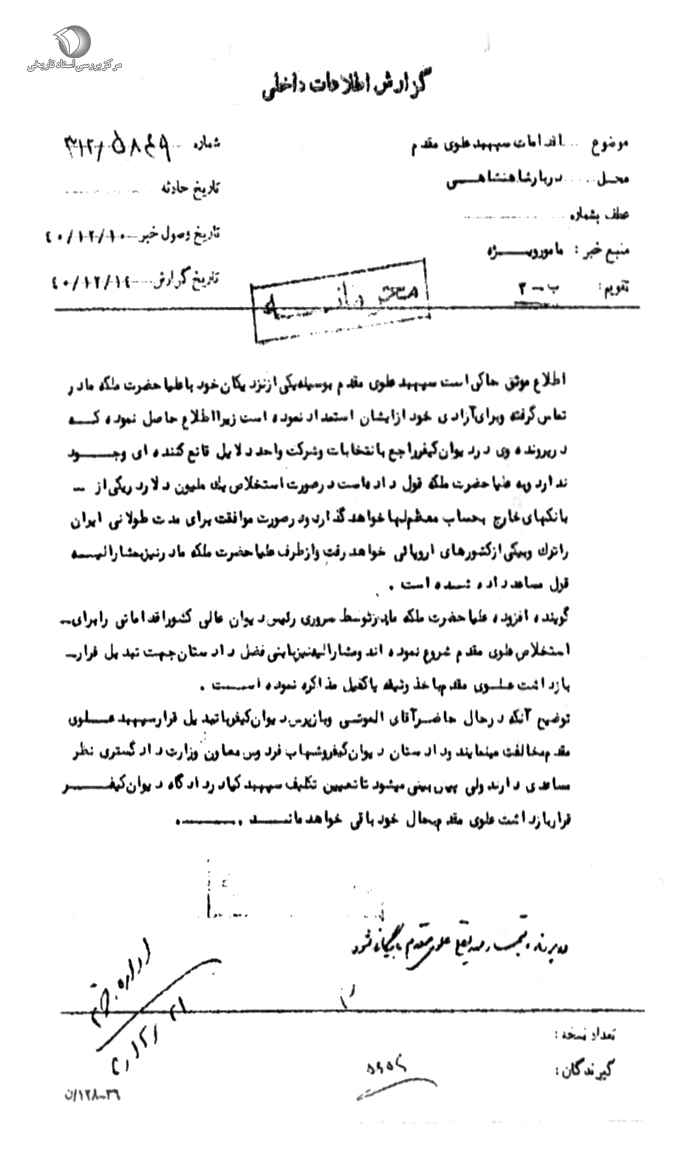 مرکز بررسی اسناد تاریخی
گزارش اطلاعات داخلی
موضوع ..... اقدامات سپهبد علوی مقدم
شماره ۳۱۲/۵۸۴۹
محل ..... دربار شاهنشاهی
تاریخ حادثه
عطف بشماره
تاریخ وصول خبر ۴۰/۱۲/۱۰
منبع خبر : مامور ویژه
تاریخ گزارش ۴۰/۱۲/۱۴
تقویم : ب - ۲
محرمانه
اطلاع موثق حاکی است سپهبد علوی مقدم بوسیله یکی از نزدیکان خود با علیا حضرت ملکه مادر
تماس گرفته و برای آزادی خود از ایشان استمداد نموده است زیرا اطلاع حاصل نموده که
در پرونده وی در دیوان کیفر راجع بانتخابات و شرکت واحد دلایل قانع کننده ای وجود
ندارد و به علیا حضرت ملکه قول داده است در صورت استخلاص یک ملیون دلار در یکی از –
بانکهای خارج بحساب معظم لها خواهد گذارد و در صورت موافقت برای مدت طولانی ایران
را ترك و بیکی از کشورهای اروپائی خواهد رفت و از طرف علیا حضرت ملکه مادر نیز بمشارالیه
قول مساعد داده شده است .
گوینده افزوده علیا حضرت ملکه مادر توسط سروری رئیس دیوان عالی کشور اقداماتی را برای –
استخلاص علوی مقدم شروع نموده اند و مشارالیه نیز با بنی فضل دادستان جهت تبدیل قرار –
بازداشت علوی مقدم باخذ وثیقه یا کفیل مذاکره نموده است .
توضیح آنکه در حال حاضر آقای الموتی و بازپرس دیوان کیفر با تبدیل قرار سپهبد علوی
مقدم مخالفت مینمایند و دادستان دیوان کیفر و شهاب فردوس معاون وزارت دادگستری نظر
مساعدی دارند ولی پیش بینی میشود تا تعیین تکلیف سپهبد کیا در دادگاه دیوان کیفر
قرار بازداشت علوی مقدم بحال خود باقی خواهد ماند .
در پرونده تیمسار علوی مقدم بایگانی شود
اداره
تعداد نسخه :
گیرندگان :
۳۶-۱۲۸/ن